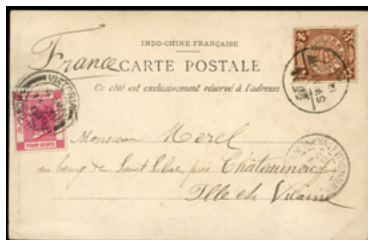 INDO-CHINE FRANÇAISE
France
CARTE POSTALE
Ce côté est exclusivement réservé à l'adresse
VICTORIA
FOUR CENTS
Monsieur Morel
au bourg de Saint par Châteauneuf
Ille et Vilaine